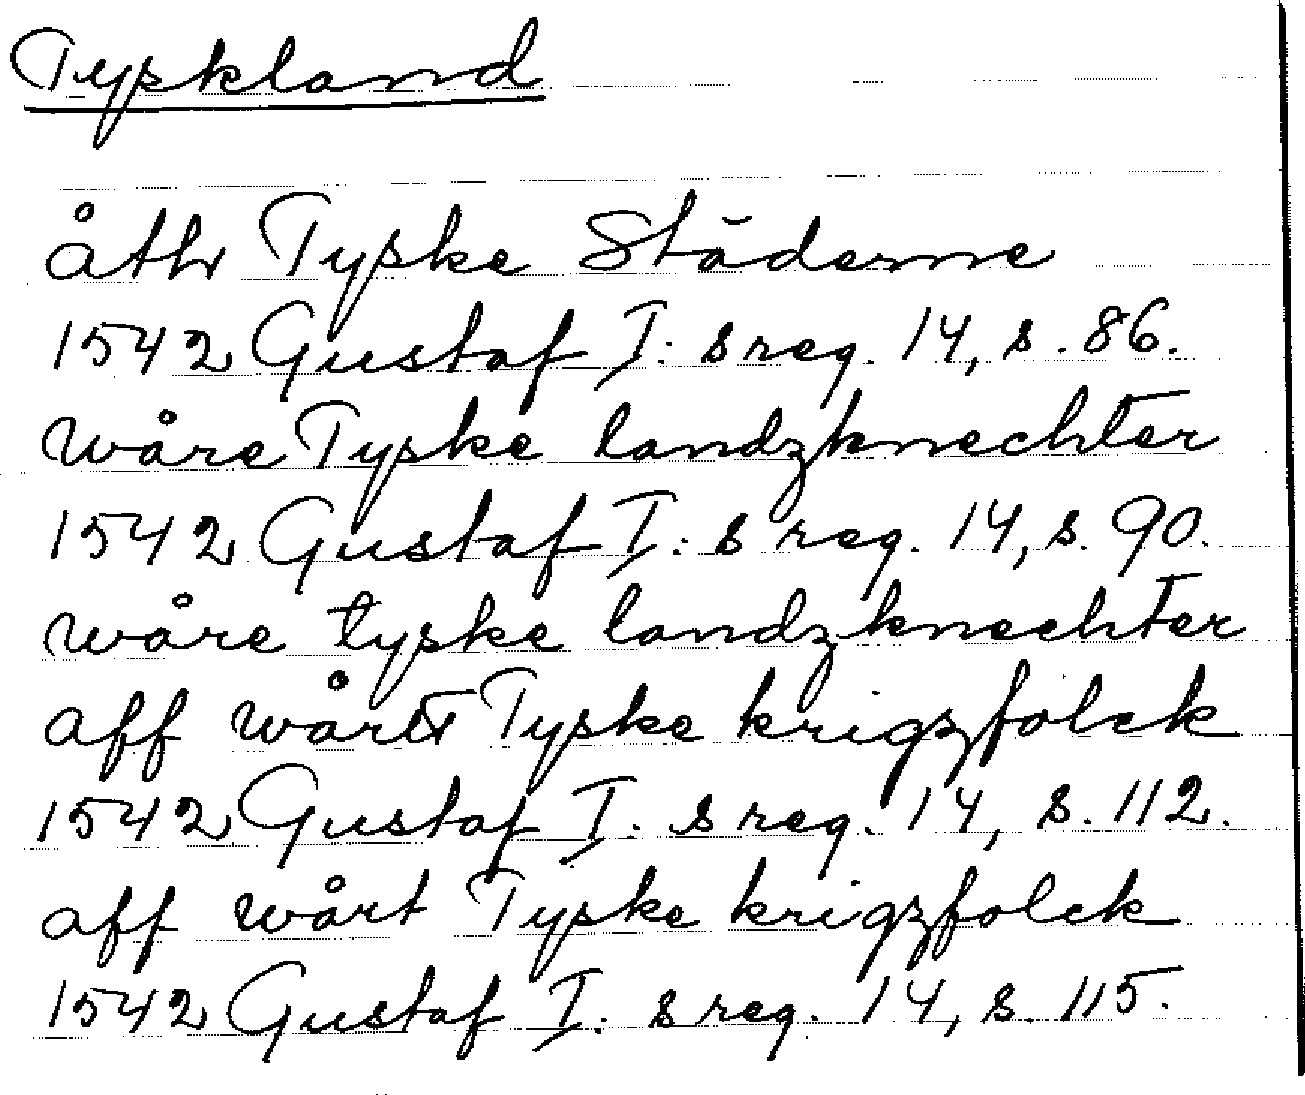 Tyskland
åth Tyske Städerne
1542 Gustaf I: s reg. 14, s. 86.
wåre Tyske landzknechter
1542 Gustaf I: s reg. 14, s. 90.
wåre tyske landzknechter
aff wårtt Tyske krigzfolck
1542 Gustaf I: s reg. 14, s. 112.
aff wårt Tyske krigzfolck
1542 Gustaf I: s reg. 14, s. 115.